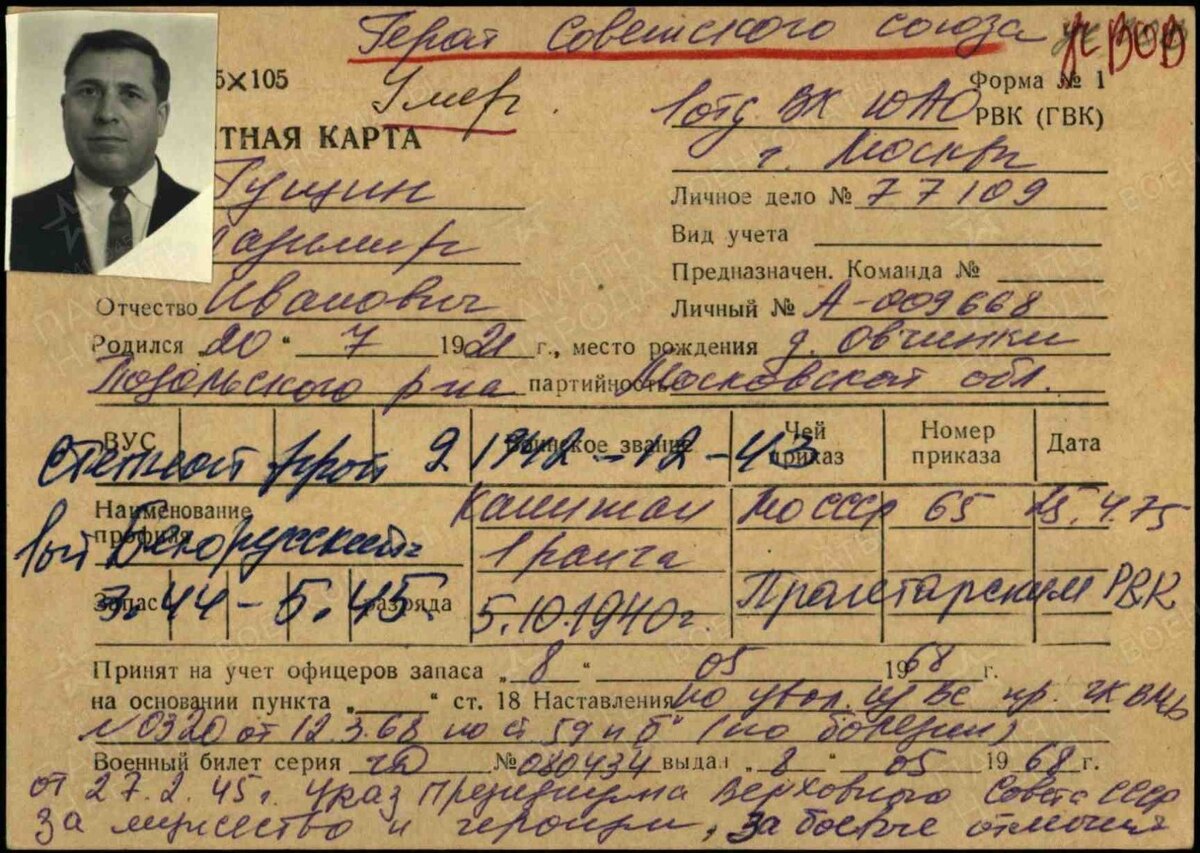 Герой Советского Союза уч ВОВ
5×105 Умер. Форма № 1
1 отд. ВК ЮАО РВК (ГВК)
ТНАЯ КАРТА г. Москвы
Гущин Личное дело № 77109
Вид учета
Предназначен. Команда №
Отчество Иванович Личный № А-009668
Родился „20 “ 7 1921 г., место рождения д. Овчинки
Подольского р-на партийность Московской обл.
ВУС Воинское звание Чей приказ Номер приказа Дата
Степной фрон 9.1942-12-43
Наименование профиля Капитан МО СССР 65 15.4.75
1ый Белорусский 1 ранга
Запас разряда 3.44 - 5.45 5.10.1940г. Пролетарским РВК
Принят на учет офицеров запаса „ 8 “ 05 1968 г.
на основании пункта „ “ ст. 18 Наставления по увол. из ВС пр. ГК ВМФ
№ 0320 от 12.3.68 по ст 59 п „б“ (по болезни)
Военный билет серия № 080434 выдан „ 8 “ 05 1968 г.
от 27.2.45 г. Указ Президиума Верховного Совета СССР
За мужество и героизм, За боевые отличия
ПАМЯТЬ НАРОДА